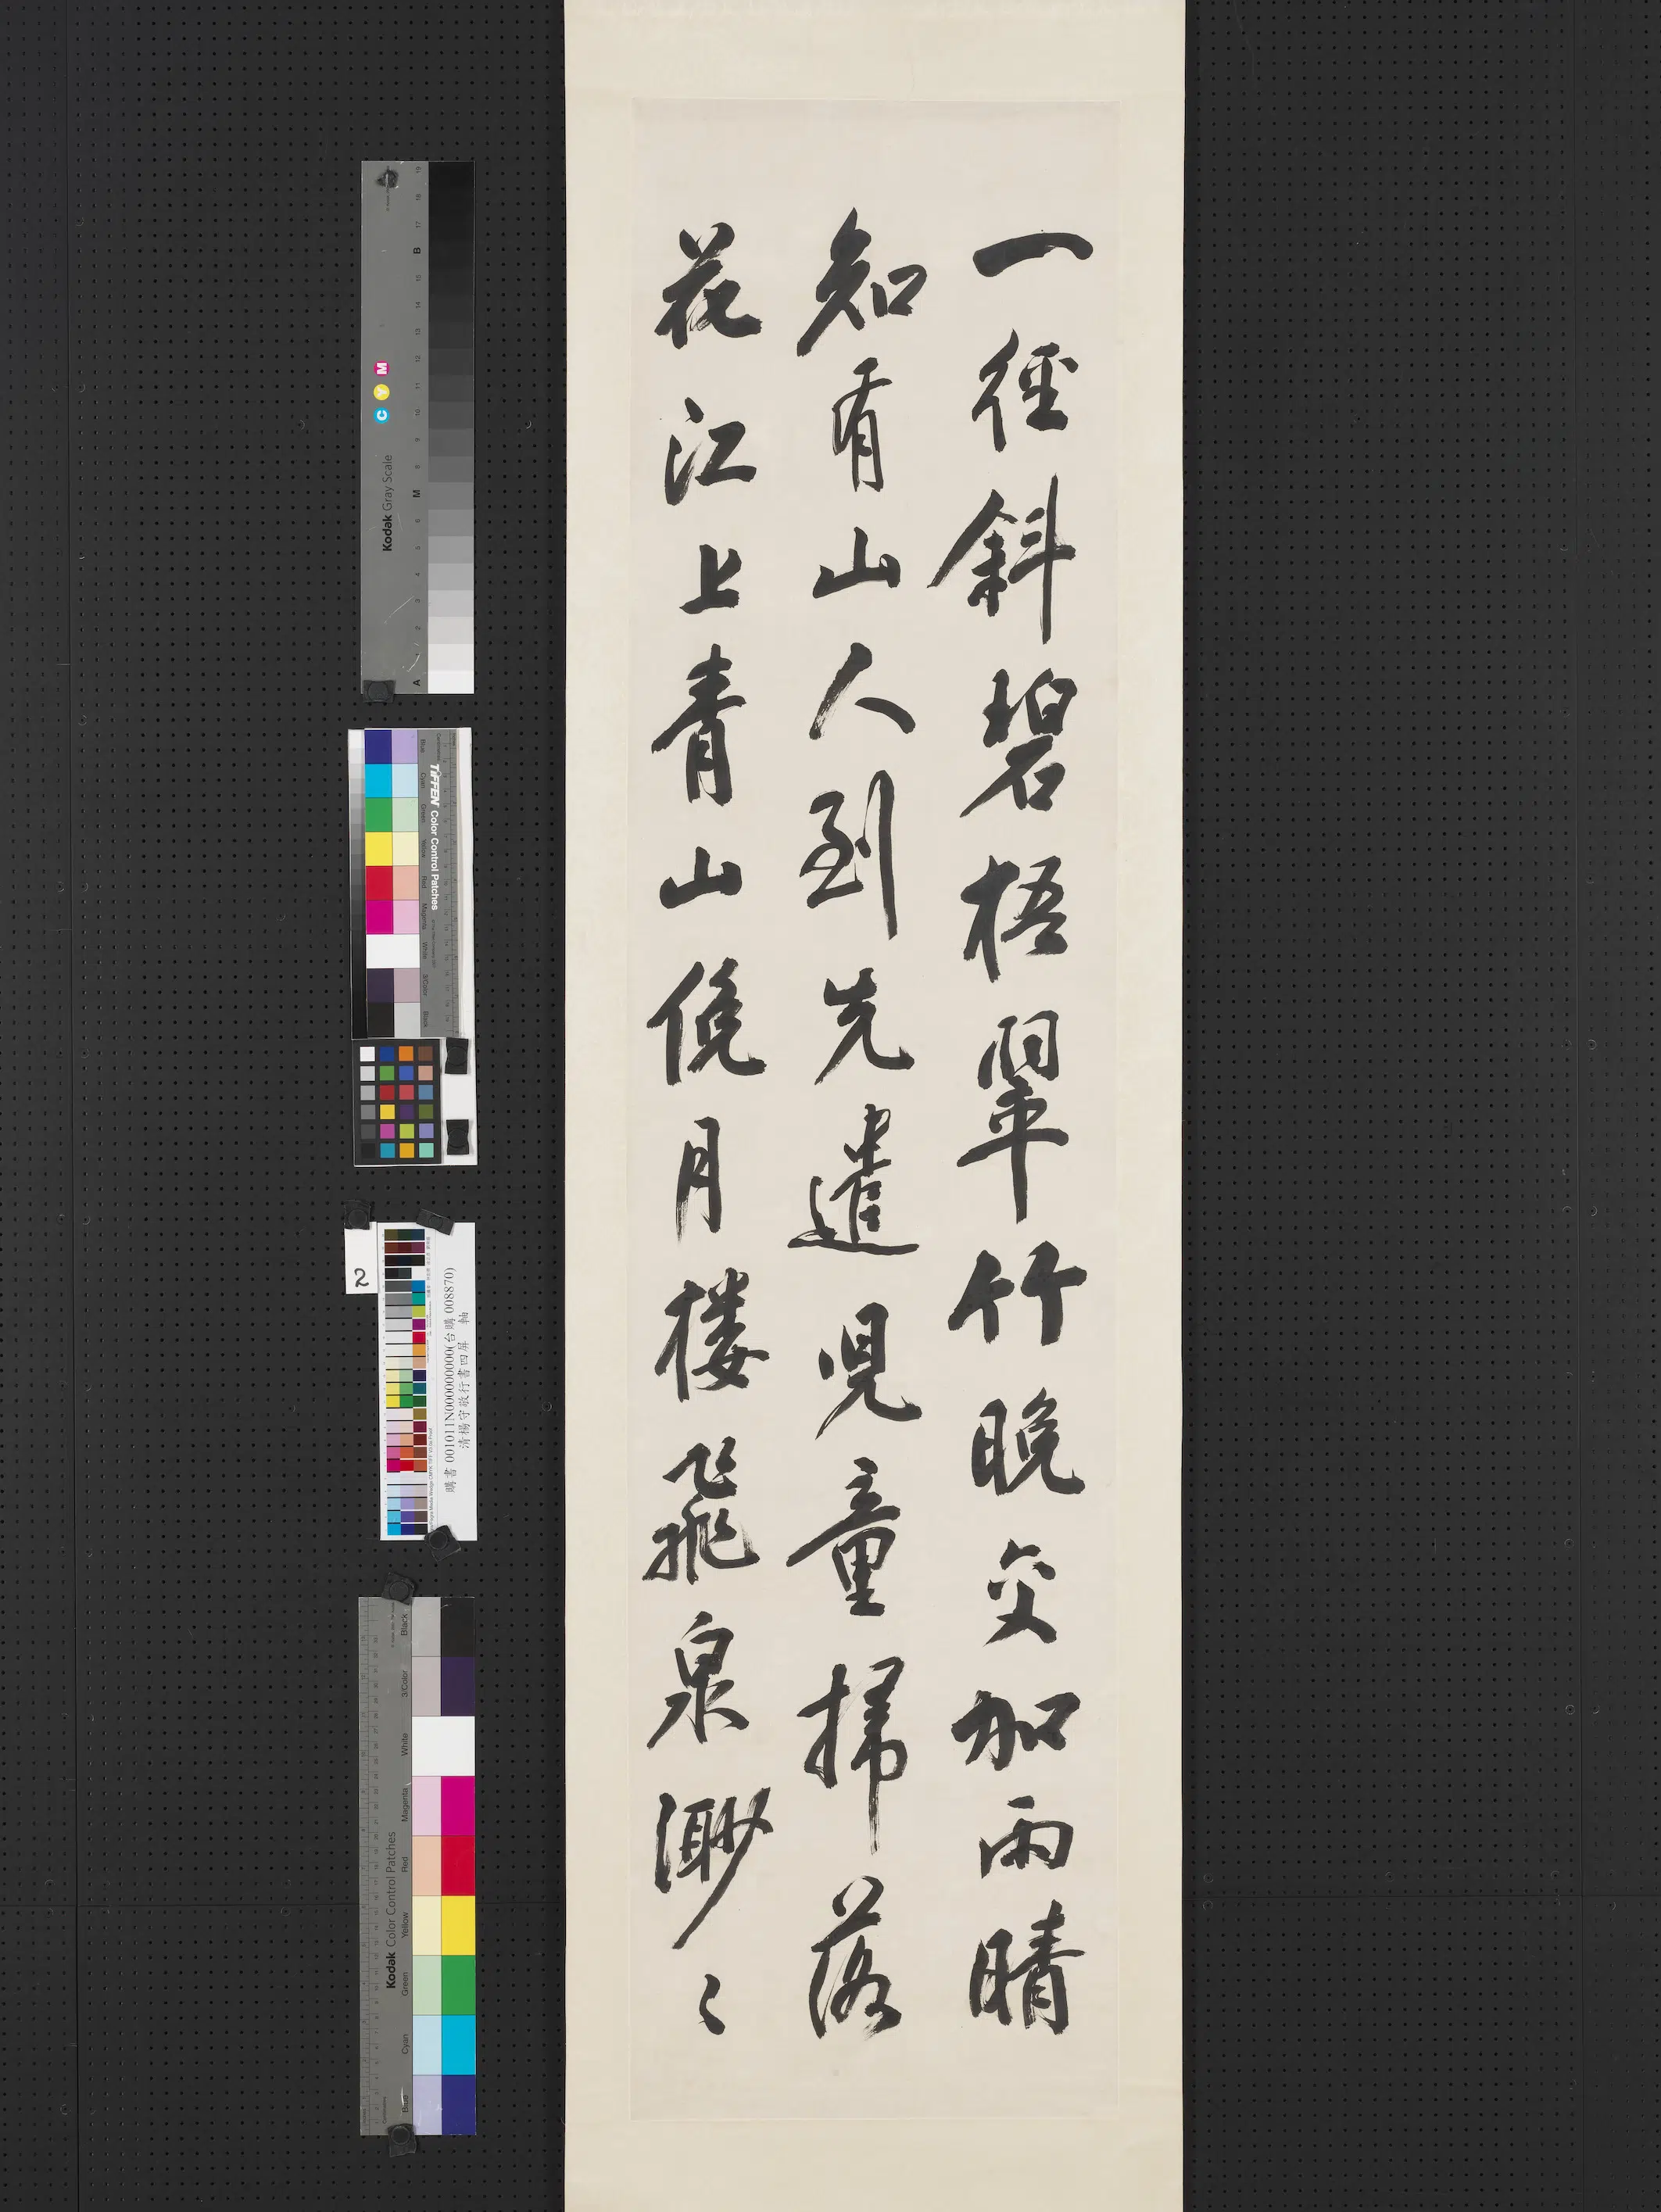 一徑斜碧梧翠竹晚交加雨晴
知有山人到先遣兒童掃落
花江上青山俛月樓飛泉渺〻
Kodak Gray Scale
C Y M
A
M
B
TIFFEN Color Control Patches
Blue
Cyan
Green
Yellow
Red
Magenta
White
3/Color
Black
2
購書 001011N000000000(台購 008870)
清楊守敬行書四屏 軸
Kodak Color Control Patches
Blue
Cyan
Green
Yellow
Red
Magenta
White
3/Color
Black